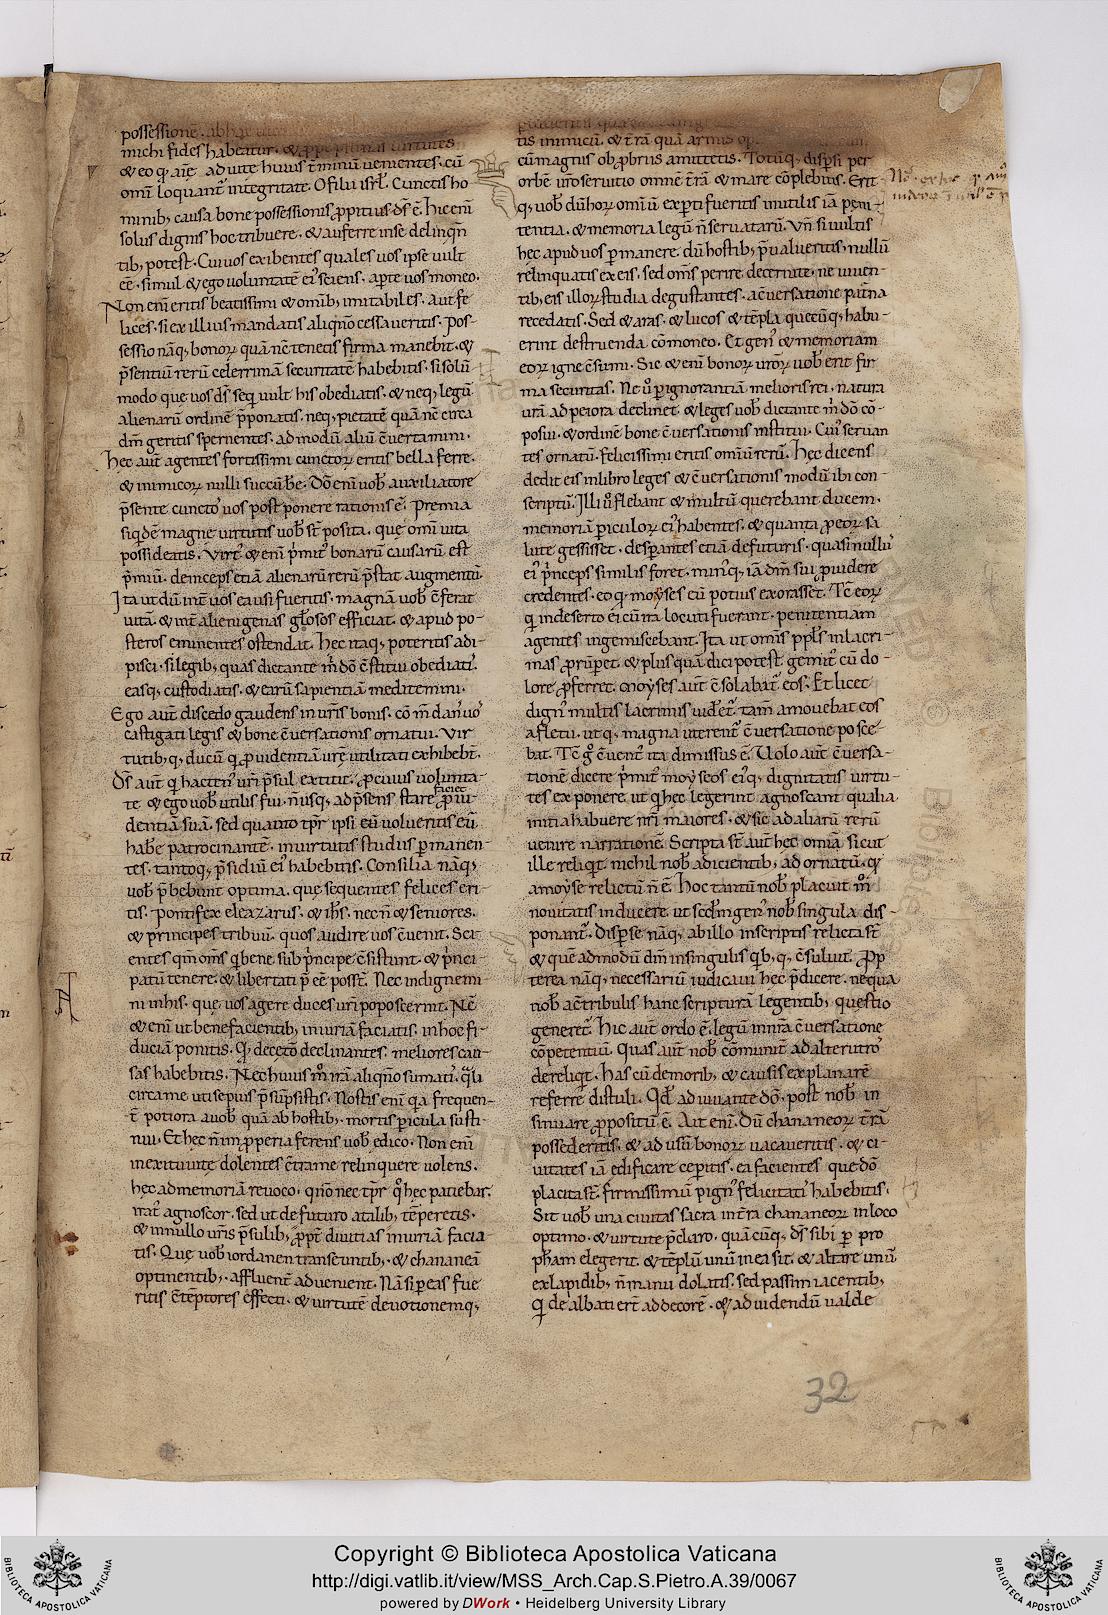 possessionē. 
michi fides habeatur. & ꝓpe plenas uirtutes
& eo q̇ aīę ad uitę huius t̄minū uenientes. cū
omī loquant̄ integritate. O filii isrl̄. Cunctis ho
minib; causa bone possessionis ꝓpitius ds̄ ē. Hic enī
solus dignis hoc tribuere. & auferre in se delinqn̄
tib; potest. Cui uos exibentes quales uos ipse uult
eē. simul & ego uoluntatē ei' sciens. aꝑte uos moneo.
Non enī eritis beatissimi & omīb; imitabiles. aut fe
lices. si ex illius mandatis aliqn̄o cessaueritis. Pos-
sessio nāq; bonoꝝ quā nc̄ tenetis firma manebit. &
p̄sentiū rerū celerrimā securitatē habebitis. si solū
modo que uos ds̄ seq̇ uult his obediatis. & neq; legū
alienarū ordinē p̄ponatis. neq; pietatē quā nc̄ circa
dm̄ geritis spernentes. ad modū aliū c̄uertamini.
Hęc aut̄ agentes fortissimi cunctoꝝ eritis bella ferre.
& inimicoꝝ nulli succūb̄e. Dō enī uob̄ auxiliatore
p̄sente cuncto' uos post ponere rationis ē. Premia
siqdē magne uirtutis uob̄ st̄ posita. quę omī uita
possideatis. Virt' & enī p̄mit' bonarū causarū est
p̄miū. deinceps etiā alienarū rerū p̄stat augmentū.
Ita ut dū int̄ uos ea usi fueritis. magnā uob̄ c̄ferat
uitā. & int̄ alienigenas gl̄osos efficiat. & apud po-
steros eminentes ostendat. Hec itaq; poteritis adi-
pisci. si legib; quas dictante m̄ dō c̄stitui obediati'.
easq; custodiatis. & earū sapientiā meditemini.
Ego aut̄ discedo gaudens in ur̄is bonis. cō m̄dan' uo'
castigati legis & bone c̄uersationis ornatui. Vir
tutib; q; ducū q̇ ꝓuidentiā ur̄ę utilitati exhibebt̄.
Ds̄ aut̄ q̇ hacten' ur̄i p̄sul extitit. ꝓ cuius uolunta-
te & ego uob̄ utilis fui. n̄ usq; ad p̄sens stare faciet ꝓui
dentiā suā. sed quanto tp̄r ipsi eū uolueritis eū
hab̄e patrocinantē. in uirtutis studiis ꝑmanen-
tes. tantoq; p̄sidiū ei' habebitis. Consilia nāq;
uob̄ p̄bebunt optima. quę sequentes felices eri-
tis. pontifex eleazarus. & ihs̄. necn̄ & seniores.
& principes tribuū. quos audire uos c̄uenit. Sci
entes qm̄ om̄s q̇ bene sub p̄ncipe c̄sistunt. & p̄nci-
patū tenere. & libertati p̄ eē posst̄. Nec indignemi
ni in his. que uos agere duces ur̄i poposcerint. Nc̄
& enī ut benefacientib; iniuriā faciatis. in hoc fi-
duciā ponitis. Q; decetō declinantes. meliores cau-
sas habebitis. Nec huius m̊ irā aliqn̄o sumati'. q̄li
circa me uti sepius p̄sūpsistis. Nostis enī q̄a frequen-
t̄ potiora a uob̄ quā ab hostib; mortis ꝑicula susti-
nui. Et hęc n̄ im ꝓperia ferens uob̄ edico. Non enī
in exitu uite dolentes c̄tra me relinquere uolens.
hęc ad memoriā reuoco. qn̄o nec tp̄r q̊ hęc patiebar.
irat' agnoscor. sed ut de futuro a talib; tēperetis.
& in nullo ur̄is p̄sulib; ꝓpt̄ diuitias iniuriā facia-
tis. Que uob̄ iordanen transeuntib; & chananeā
optinentib; affluent̄ aduenient. Nā si ꝑ eas fue
ritis c̄tēptores effecti. & uirtutē deuotionemq;
tis inimicū. & t̄rā quā armis
cū magnis obꝓbriis amittetis. Totūq; disꝑsi per
orbē ur̄o seruitio omnē t̄rā & mare cōplebitis. Erit
q; uob̄ dū hoꝝ omiū exꝑti fueritis inutilis iā peni-
tentia. & memoria legū n̄ seruatarū. Vn̄ si uultis
hęc apud uos ꝑmanere. dū hostib; p̄ualueritis. nullū
relinquatis ex eis. sed om̄s perire decernite. ne uiuen-
tib; eis illoꝝ studia degustantes. a c̄uersatione patn̄a
recedatis. Sed & aras. & lucos & tēpla quecūq; habu-
erint destruenda cōmoneo. Et gen' & memoriam
eoꝝ igne c̄sumi. Sic & enī bonoꝝ ur̄oꝝ uob̄ erit fir
ma securitas. Ne ů ꝑ ignorantiā melioris rei. natura
ur̄a ad peiora declinet. & leges uob̄ dictante m̄ dō cō-
posui. & ordinē bone c̄uersationis institui. Cui' seruan
tes ornatū. felicissimi eritis omiū rerū. Hęc dicens
dedit eis in libro leges & c̄uersationis modū ibi con
scriptū. Illi ů flebant & multū querebant ducem.
memoriā ꝑiculoꝝ ei' habentes. & quanta ꝓ eoꝝ sa
lute gessisset. desꝑantes etiā de futuris. quasi nullu'
ei' p̄nceps similis foret. min'q; iā dm̄ sui ꝓuidere
credentes. eo q̇ moyses cū potius exorasset. Tc̄ eoꝝ
q̇ in deserto ei cū ira locuti fuerant. penitentiam
agentes ingemiscebant. Ita ut om̄s ppl̄s in lacri-
mas ꝓrūpet. & plus quā dici potest. gemit' cū do-
lore ꝓferret. Moyses aut̄ c̄solabat̄ eos. Et licet
dign' multis lacrimis uidet̄. tam̄ amouebat eos
a fletu. ut q; magna uterent̄ c̄uersatione posce-
bat. Tc̄ g̊ c̄uent' ita dimissus ē. Volo aut̄ c̄uersa-
tionē dicere p̄mit' moyseos ei'q; dignitatis uirtu-
tes exponere. ut q̇ hęc legerint agnoscant qualia
initia habuere nr̄i maiores. & sic ad aliarū rerū
uenire narrationē. Scripta st̄ aut̄ hęc omīa sicut
ille reliqt. nichil nob̄ adicientib; ad ornatū. q̇
a moyse relictū n̄ ē. Hoc tantū nob̄ placuit m̊
nouitatis inducere. ut scd̄m gen' nob̄ singula dis-
ponant̄. disꝑse nāq; ab illo in scriptis relicta st̄
& quē admodū dm̄ in singulis qb; q; c̄suluit. Ꝓp
terea nāq; necessariū iudicaui hęc p̄dicere. ne qua
nob̄ a c̄tribulis hanc scripturā legentib; quęstio
generet̄. Hic aut̄ ordo ē. legū in nr̄a c̄uersatione
cōpetentiū. Quas aut̄ nob̄ cōmunit̄ ad alterutro'
dereliqt. Has cū de morib; & causis explanarē
referre distuli. Qd̄ ad iuuante dō. post nob̄ in
sinuare ꝓpositū ē. Ait enī. Dū chananeoꝝ t̄rā
possederitis. & ad usū bonoꝝ uacaueritis. & ci-
uitates iā edificare cepitis. ea facientes que dō
placita st̄. firmissimū pign' felicitati' habebitis.
Sit uob̄ una ciuitas sacra in t̄ra chananeoꝝ in loco
optimo. & uirtute p̄claro. quā cūq; ds̄ sibi ꝑ pro
ph̄am elegerit. & tēplū unū in ea sit. & altare unū
ex lapidib; n̄ manu dolatis. sed passim iacentib;
q̇ de albati ert̄ ad decorē. & ad uidendū ualde
32
Copyright © Biblioteca Apostolica Vaticana
http://digi.vatlib.it/view/MSS_Arch.Cap.S.Pietro.A.39/0067
powered by DWork • Heidelberg University Library
BIBLIOTECA APOSTOLICA VATICANA
BIBLIOTECA APOSTOLICA VATICANA